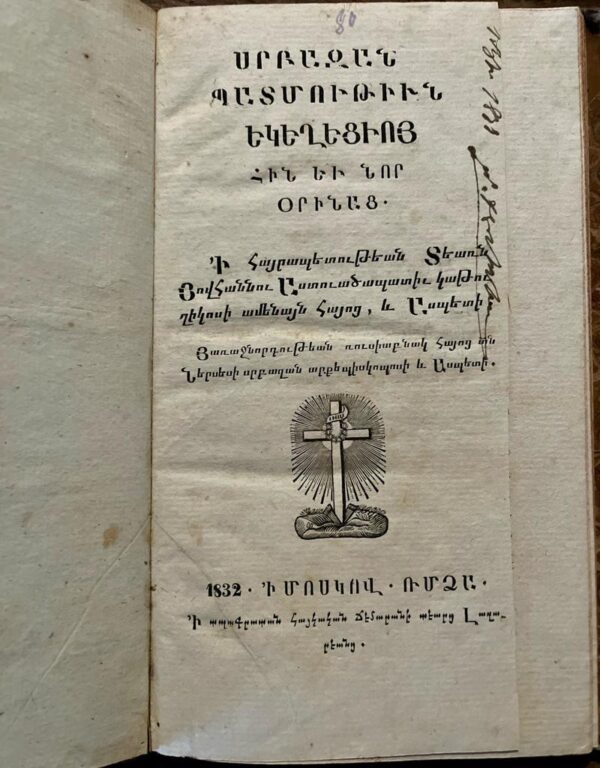 80
ՍՐԲԱԶԱՆ
ՊԱՏՄՈՒԹԻՒՆ
ԵԿԵՂԵՑԻՈՅ
ՀԻՆ ԵՒ ՆՈՐ
ՕՐԻՆԱՑ.
Ի Հայրապետութեան Տեառն
Յովհաննու Աստուածապատիւ կաթու
ղիկոսի ամենայն Հայոց, և Ասպետի
Յառաջնորդութեան ռուսիաբնակ Հայոց տն
Ներսեսի սրբազան արքեպիսկոպոսի և Ասպետի.
1832. Ի ՄՈՍԿՈՎ. ՌՄՁԱ.
Ի տպագրատան Հայկական Ճէմարանի տեարց Ղազա-
րեանց.